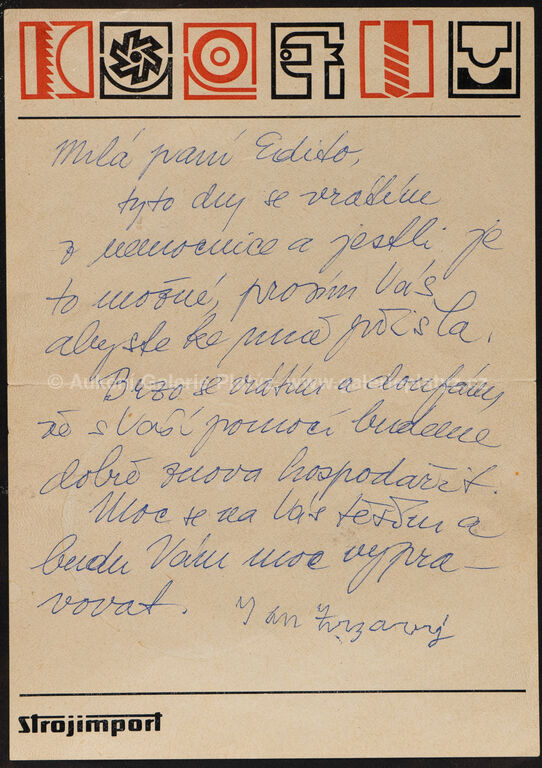 Milá paní Edito,
tyto dny se vrátím
z nemocnice a jestli je
to možné, prosím Vás
abyste ke mně přišla.
Brzo se vrátím a doufám,
že s Vaší pomocí budeme
dobře znova hospodařit.
Moc se na Vás těším a
budu Vám moc vypra-
vovat. Jan Zrzavý
strojimport